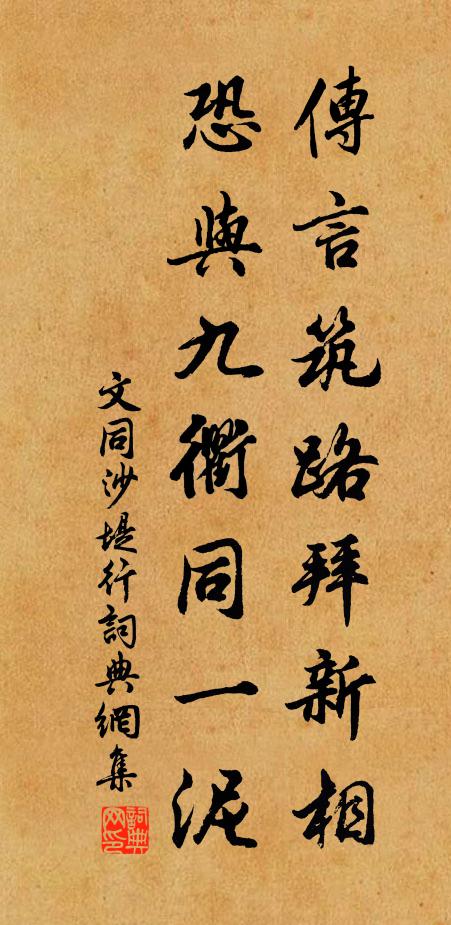 傳言筑路拜新相
恐與九衢同一泥
文同沙堤行詞典網集
詞典网印